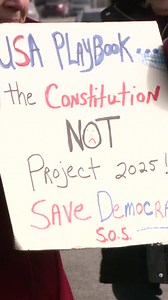 USA PLAYBOOK...
the CONSTITUTION
NOT
Project 2025!
SAVE DEMOCRA
S.O.S.